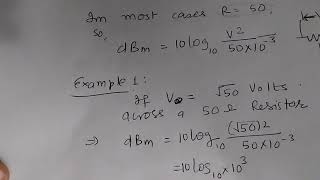 In most cases R = 50,
so,
dBm = 10log₁₀ V²/50×10⁻³
Example 1:
If V = √50 Volts.
across a 50Ω Resistor
⇒ dBm = 10log₁₀ (√50)²/50×10⁻³
= 10log₁₀×10³